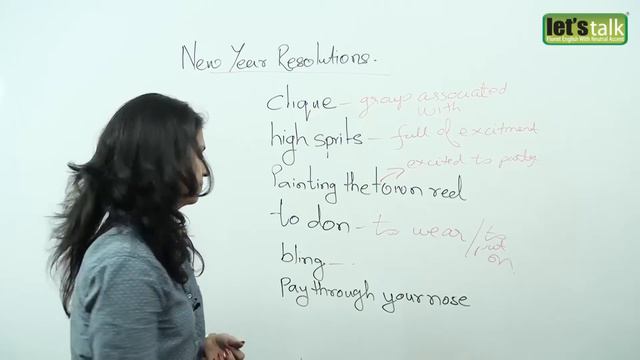 let'stalk
Fluent English With Neutral Accent
New Year Resolutions.
clique - group associated with
high sprits - full of excitment
excited to party
Painting the town red
to don - to wear / to put on
bling -- .
Pay through your nose